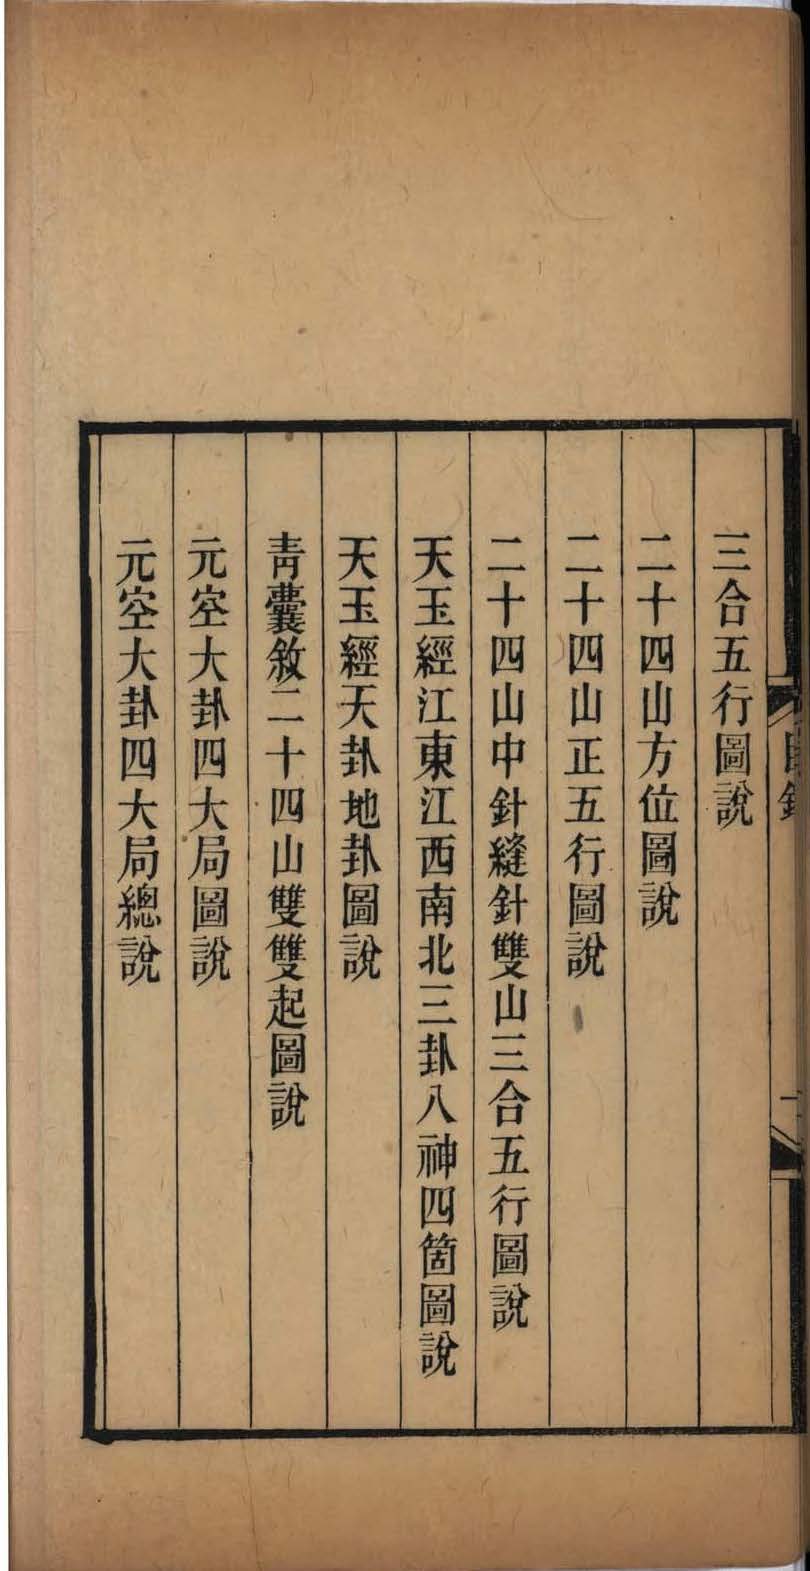 目錄
三合五行圖說
二十四山方位圖說
二十四山正五行圖說
二十四山中針縫針雙山三合五行圖說
天玉經江東江西南北三卦八神四箇圖說
天玉經天卦地卦圖說
青囊敘二十四山雙雙起圖說
元空大卦四大局圖說
元空大卦四大局總說